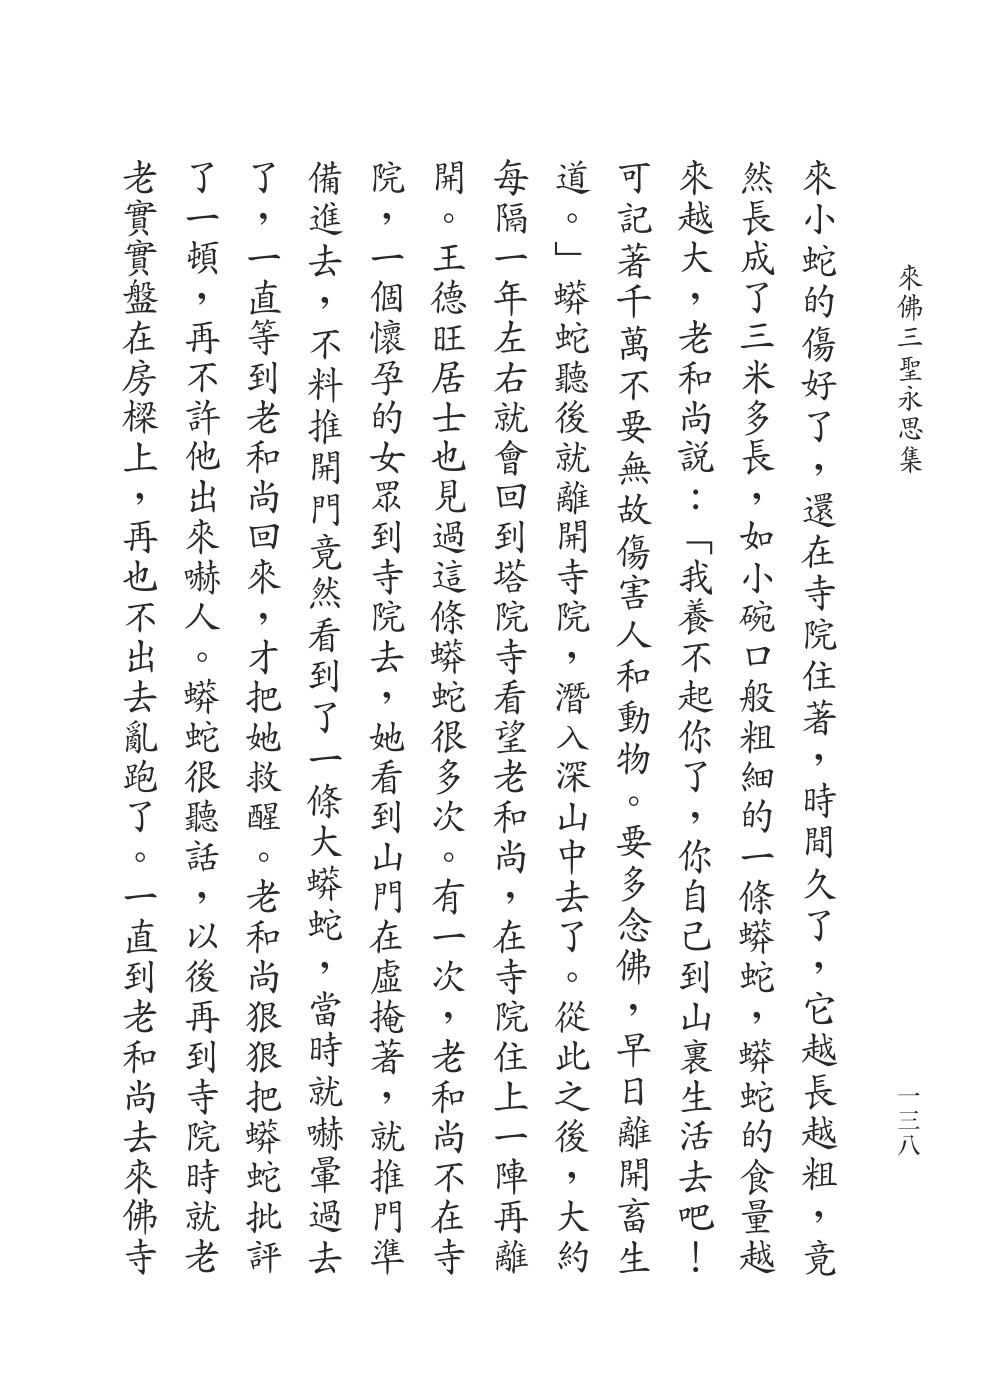 來佛三聖永思集
一三八
來小蛇的傷好了，還在寺院住著，時間久了，它越長越粗，竟
然長成了三米多長，如小碗口般粗細的一條蟒蛇，蟒蛇的食量越
來越大，老和尚説：「我養不起你了，你自己到山裏生活去吧！
可記著千萬不要無故傷害人和動物。要多念佛，早日離開畜生
道。」蟒蛇聽後就離開寺院，潛入深山中去了。從此之後，大約
每隔一年左右就會回到塔院寺看望老和尚，在寺院住上一陣再離
開。王德旺居士也見過這條蟒蛇很多次。有一次，老和尚不在寺
院，一個懷孕的女眾到寺院去，她看到山門在虛掩著，就推門準
備進去，不料推開門竟然看到了一條大蟒蛇，當時就嚇暈過去
了，一直等到老和尚回來，才把她救醒。老和尚狠狠把蟒蛇批評
了一頓，再不許他出來嚇人。蟒蛇很聽話，以後再到寺院時就老
老實實盤在房樑上，再也不出去亂跑了。一直到老和尚去來佛寺